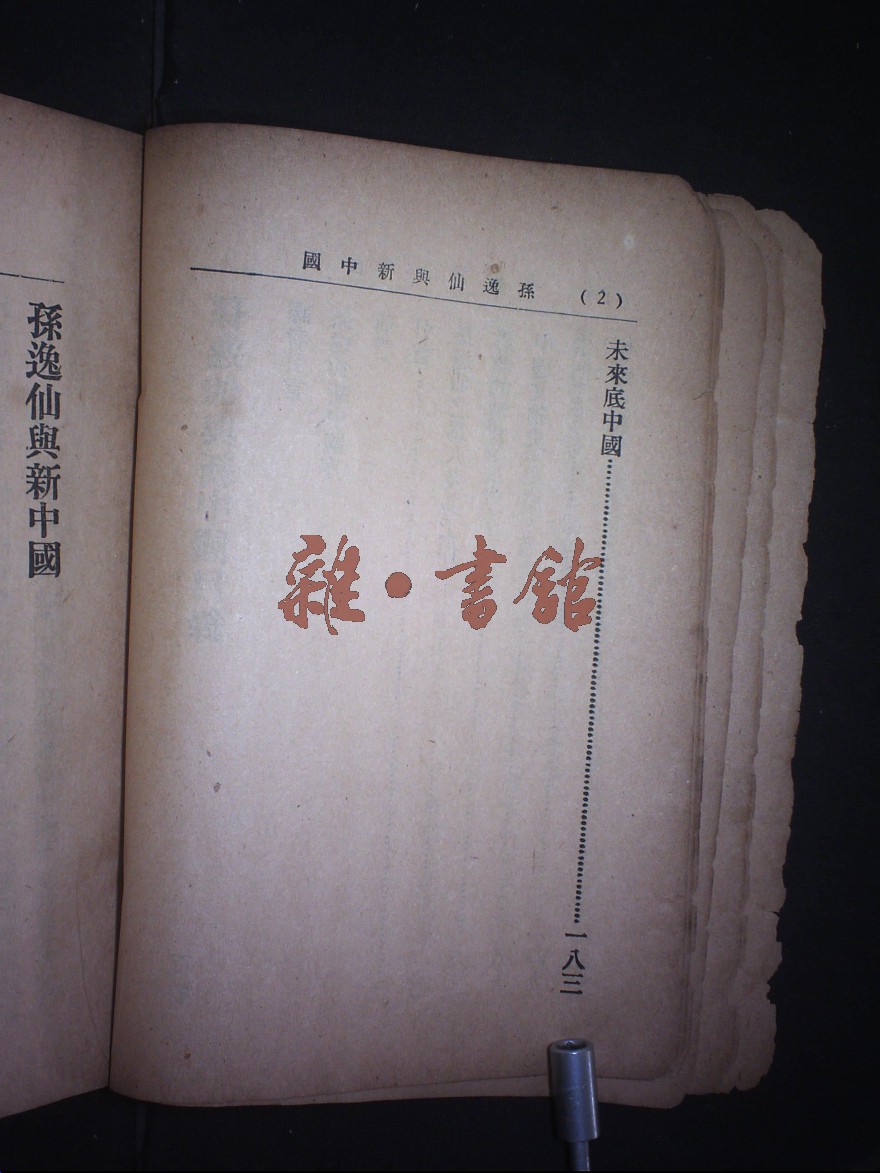 孫逸仙與新中國 (2)
未來底中國……一八三
孫逸仙與新中國
雜·書館